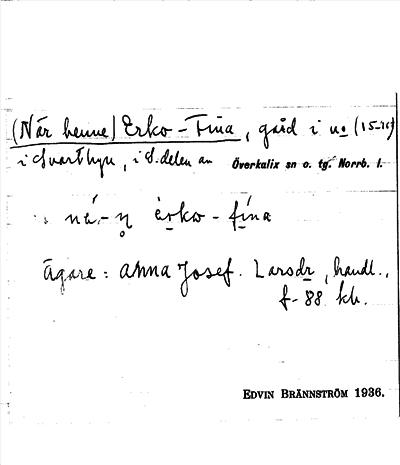 (När henne) Erko-Fina, gård i no (15-16)
i Svartbyn, i S. delen av Överkalix sn o. tg. Norrb. l.
ärko - fína
Ägare: Anna Josef. Larsdr, handl.,
f- 88 kb.
EDVIN BRÄNNSTRÖM 1936.